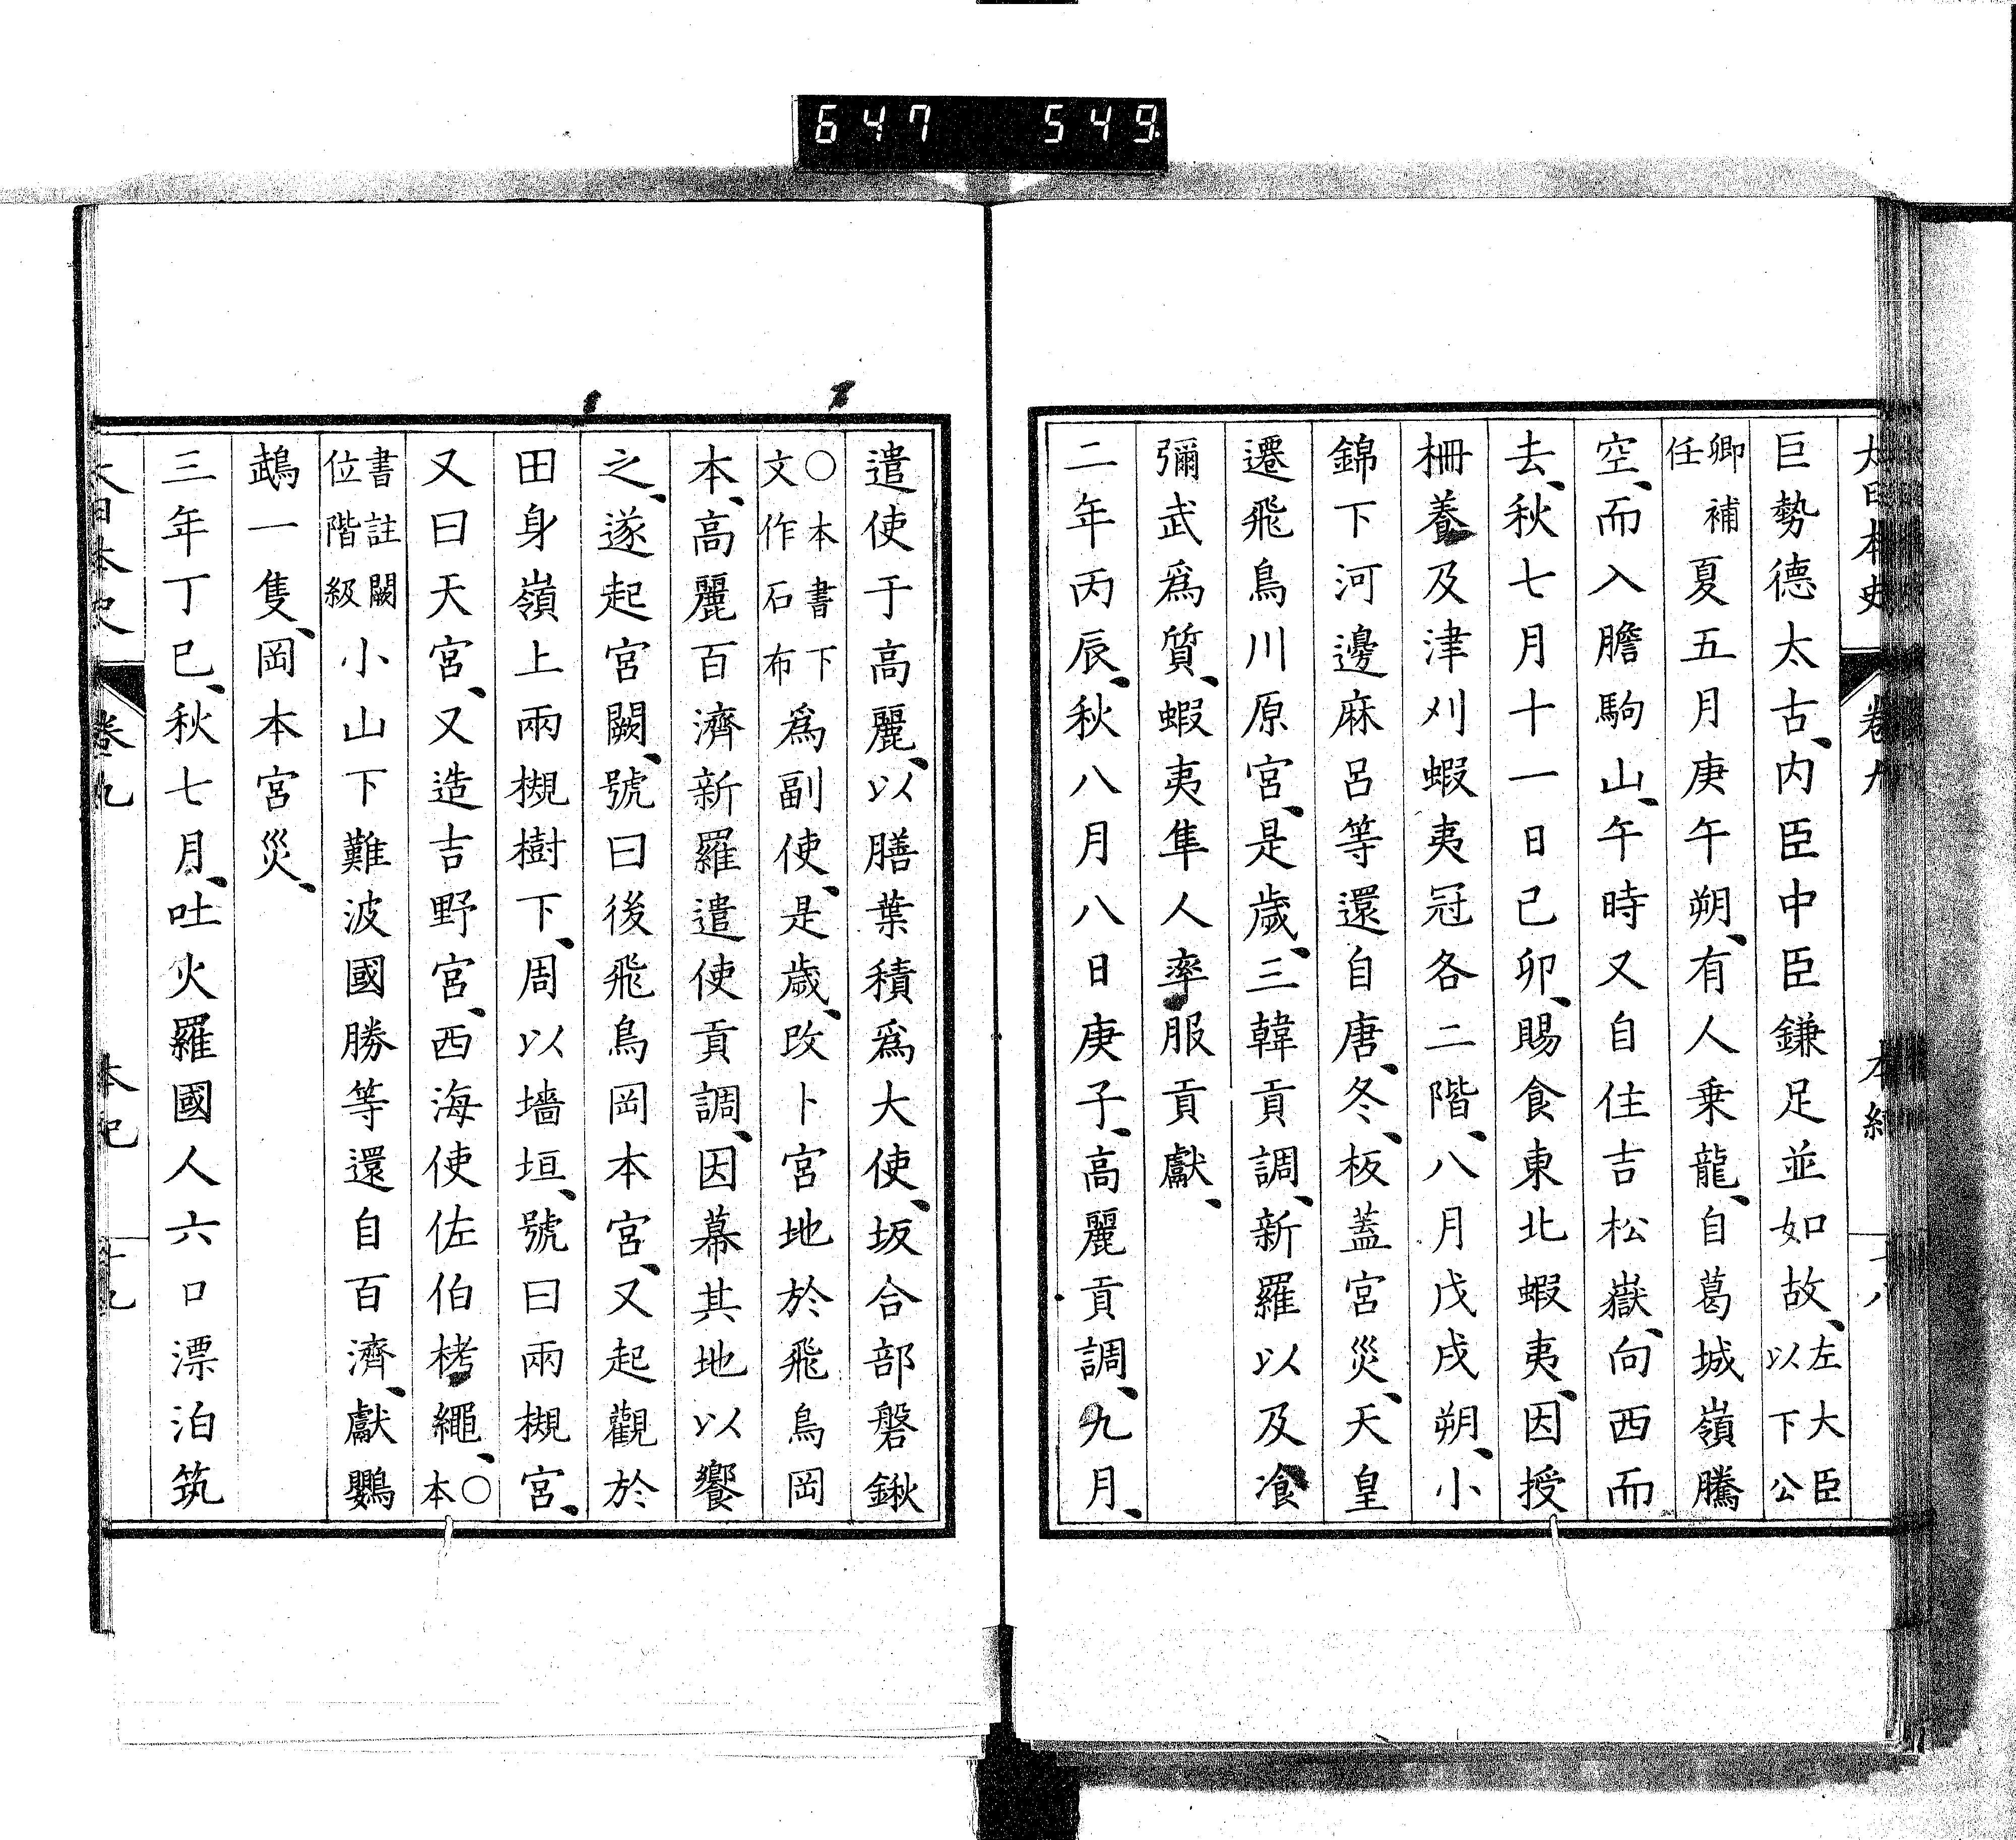 647 549
大日本史 卷九 本紀 十八
巨勢德太古、内臣中臣鎌足並如故、左大臣以下公
卿補任夏五月庚午朔、有人乗龍、自葛城嶺騰
空、而入膽駒山、午時又自住吉松嶽、向西而
去、秋七月十一日己卯、賜食東北蝦夷、因授
柵養及津刈蝦夷冠各二階、八月戊戌朔、小
錦下河邊麻呂等還自唐、冬、板蓋宮災、天皇
遷飛鳥川原宮、是歲、三韓貢調、新羅以及飡
彌武爲質、蝦夷隼人率服貢獻、
二年丙辰、秋八月八日庚子、高麗貢調、九月、
遣使于高麗、以膳葉積爲大使、坂合部磐鍬
○本書下文作石布爲副使、是歲、改卜宮地於飛鳥岡
本、高麗百濟新羅遣使貢調、因幕其地以饗
之、遂起宮闕、號曰後飛鳥岡本宮、又起觀於
田身嶺上兩槻樹下、周以墻垣、號曰兩槻宮、
又曰天宮、又造吉野宮、西海使佐伯栲繩、○本
書註闕位階級小山下難波國勝等還自百濟、獻鸚
鵡一隻、岡本宮災、
三年丁巳、秋七月、吐火羅國人六口漂泊筑
大日本史 卷九 本紀 十九